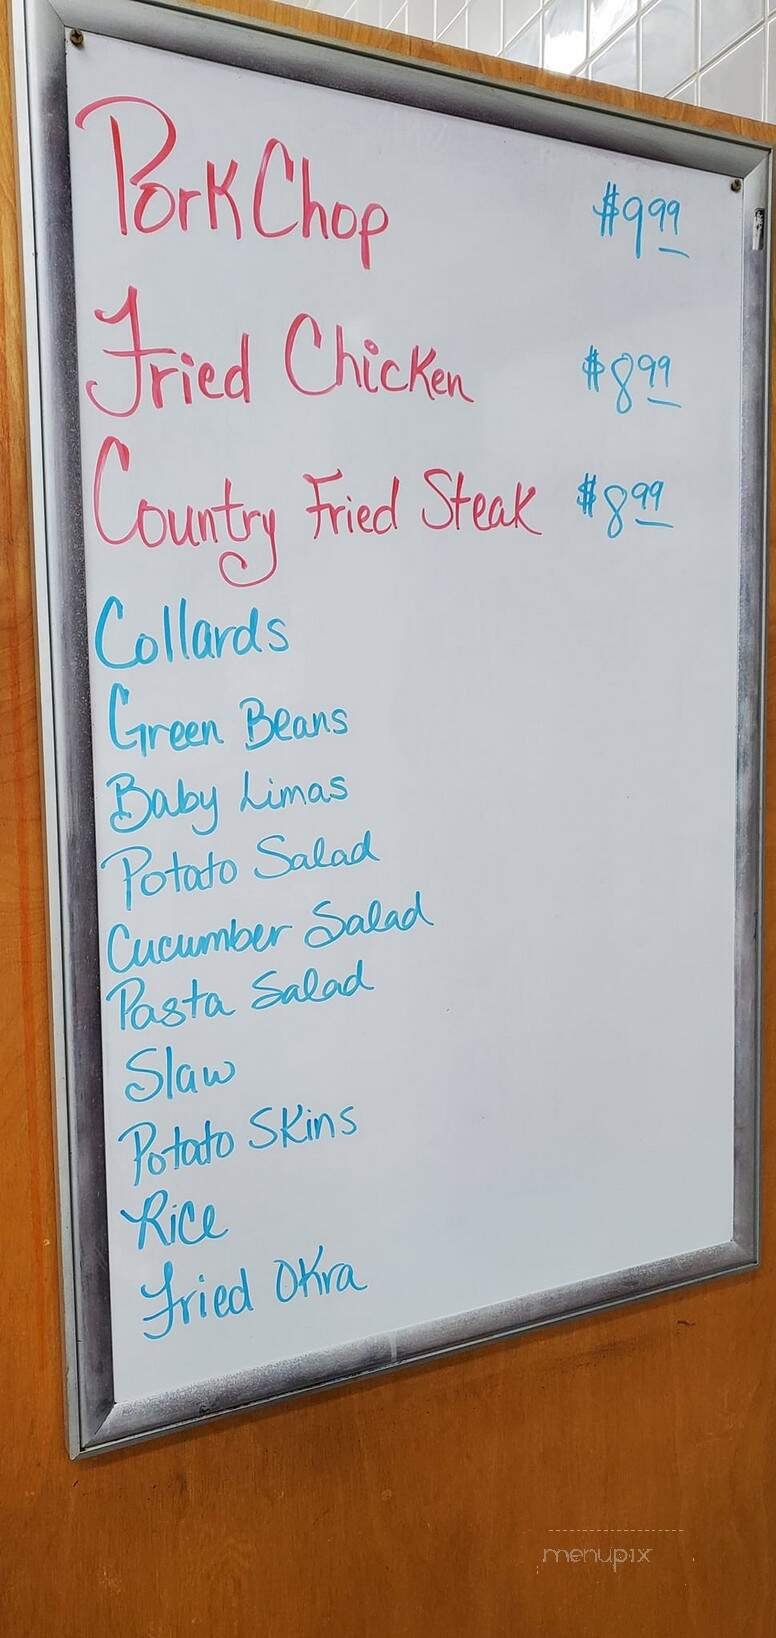 Pork Chop $9.99
Fried Chicken $8.99
Country Fried Steak $8.99
Collards
Green Beans
Baby Limas
Potato Salad
Cucumber Salad
Pasta Salad
Slaw
Potato Skins
Rice
Fried Okra
menupix